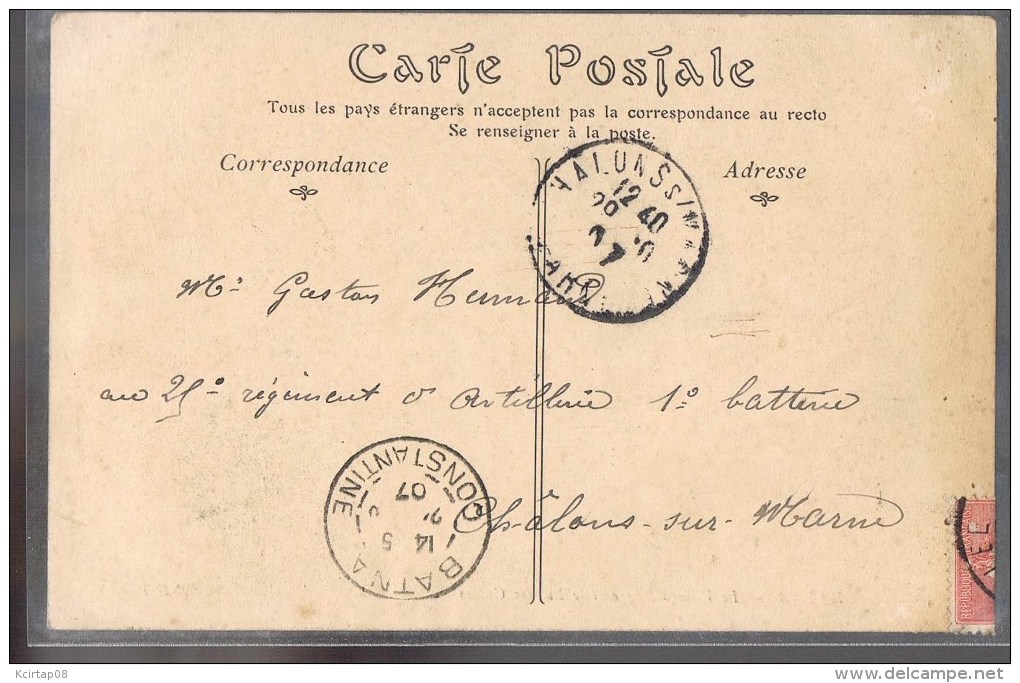 Carte Postale
Tous les pays étrangers n'acceptent pas la correspondance au recto
Se renseigner à la poste.
Correspondance
Adresse
HALONS S/MARNE
12 40
20
MARNE
Mr Gaston
au 25e régiment d'Artillerie 1e batterie
Châlons-sur-Marne
BATNA
CONSTANTINE
14 5
07
REPUBLIQUE
Kcirtap08
delcampe.net